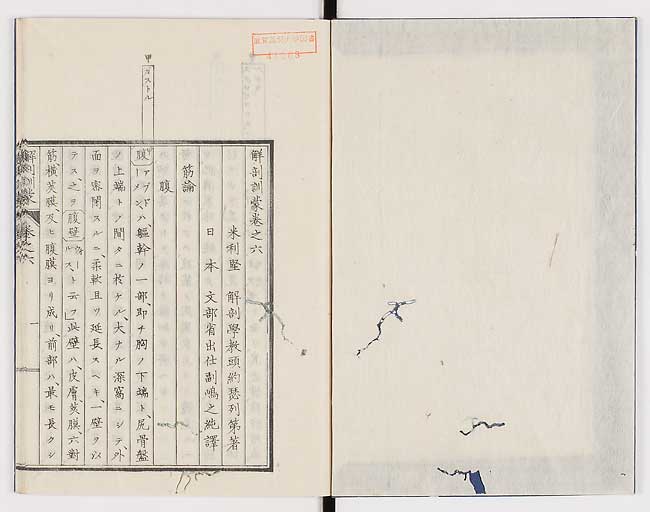 解剖訓蒙巻之六
米利堅 解剖學教頭約瑟列第著
日本 文部省出仕副嶋之純譯
筋論
腹
腹 アブドーメン ハ、軀幹ノ一部、即チ胸ノ下端ト、尻骨盤
ノ上端トノ間タニ於ケル、大ナル深窩ニシテ、外
面ヲ密閉スルニ、柔軟且ツ延長スヘキ、一壁ヲ以
テス、之ヲ腹壁 ト云フ」此壁ハ、皮膚、莢膜、六對
筋、横莢膜、及ヒ腹膜ヨリ成リ、前部ハ、最モ長クシ
解剖訓蒙 巻之六 一
甲 ガストル